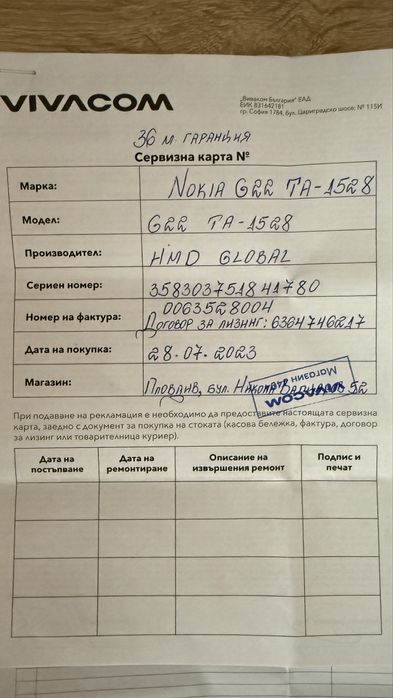 VIVACOM
„Виваком България" ЕАД
ЕИК 831642181
гр. София 1784, бул. Цариградско шосе, № 115И
36 м. ГАРАНЦИЯ
Сервизна карта №
Марка: NOKIA G22 TA-1528
Модел: G22 TA-1528
Производител: HMD GLOBAL
Сериен номер: 358303751841780
Номер на фактура: 0063528004
Договор за лизинг: 6364746217
Дата на покупка: 28.07.2023
Магазин: Пловдив, бул. Никола 52
VIVACOM
Магазин
При подаване на рекламация е необходимо да предоставите настоящата сервизна
карта, заедно с документ за покупка на стоката (касова бележка, фактура, договор
за лизинг или товарителница куриер).
Дата на постъпване
Дата на ремонтиране
Описание на извършения ремонт
Подпис и печат